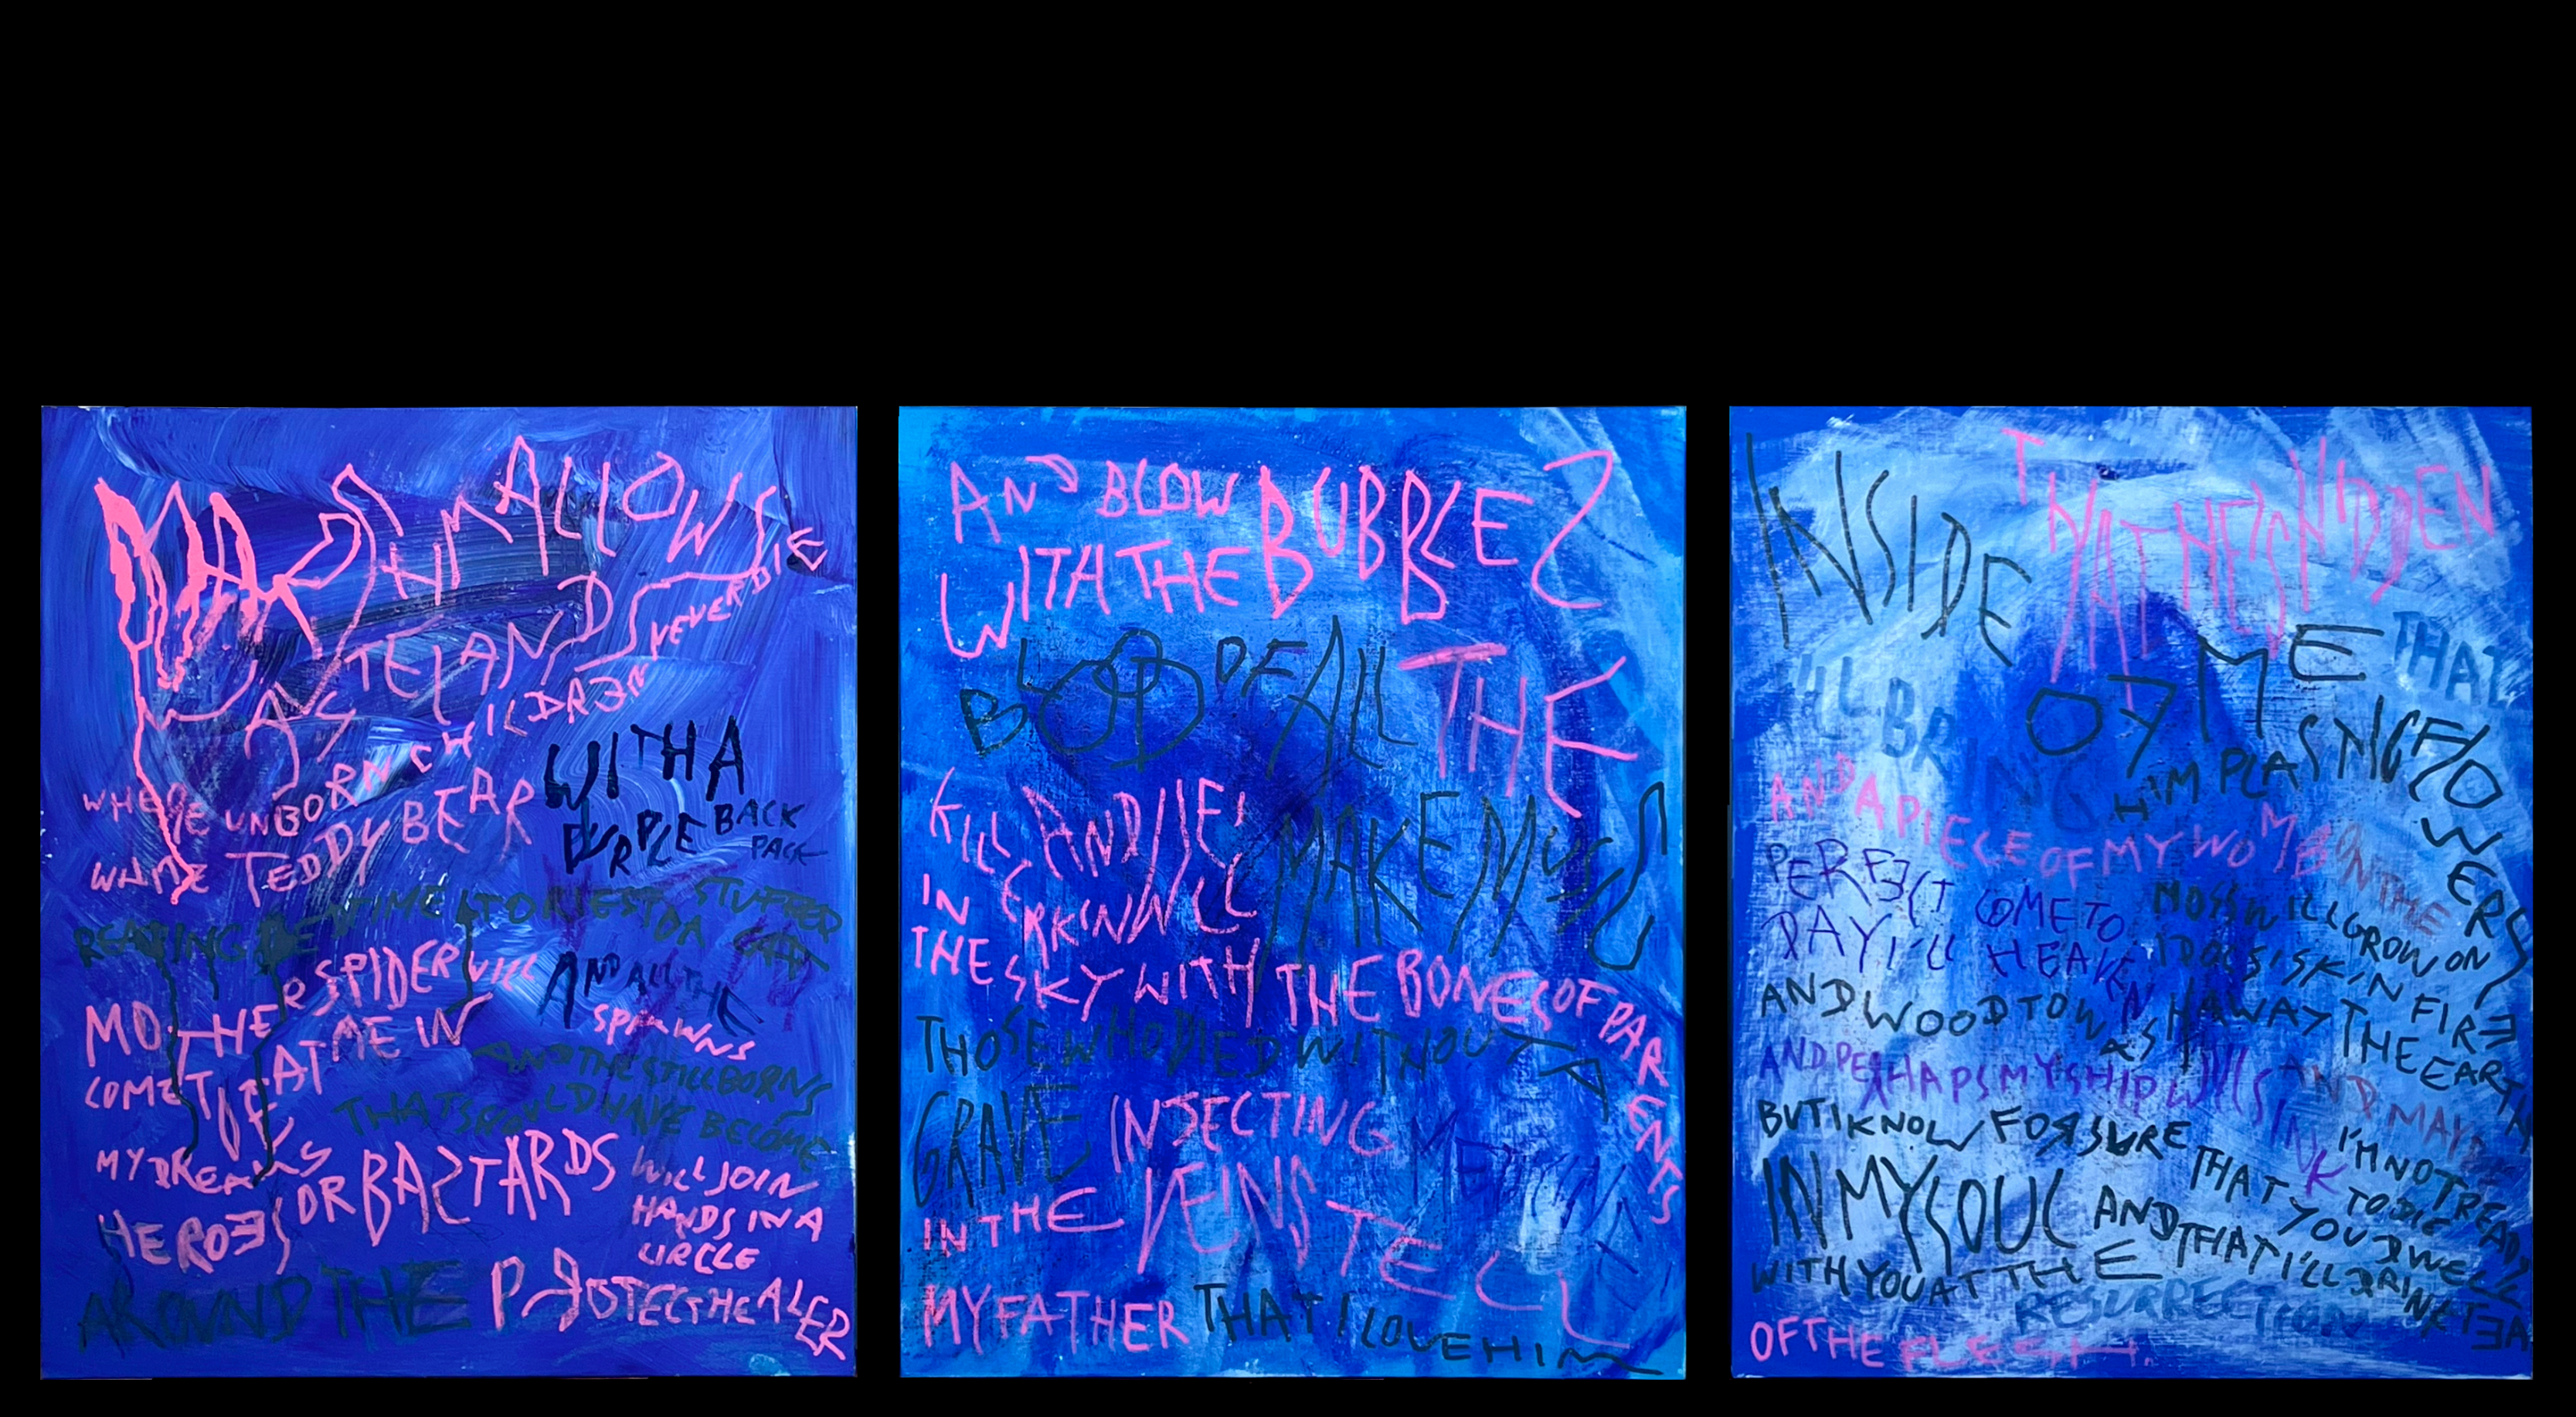 MARSHMALLOWS
WASTELAND
WHERE UNBORN CHILDREN NEVER DIE
WHITE TEDDY BEAR
WITH A
PURPLE BACK
PACK
READING BEATIME
STUFFED
MOTHER SPIDER WILL
AND ALL THE
SPAWNS
COME EAT ME IN
AND THE STILLBORNS
MY DREAMS
THAT SHOULD HAVE BECOME
HEROES OR BASTARDS
WILL JOIN
HANDS IN A
CIRCLE
AROUND THE PROTECT HEALER
AND BLOW BUBBLES
WITH THE
BLOOD OF ALL THE
KILL AND
MAKE MUSU
IN
THE SKY WITH THE BONES OF PARENTS
THOSE WHO DIED WITHOUT A
GRAVE INJECTING
IN THE VEINS TELL
MY FATHER THAT I LOVE HIM
INSIDE OF ME
THAT HE'S HIDDEN
THAT
I'LL BRING HIM PLASTIC FLOWERS
AND A PIECE OF MY WOMB ON THE
PERFECT
DAY I'LL COME TO HEAVEN
MOSS WILL GROW ON
IDOLS' SKIN FIRE
AND WOOD TO WASH AWAY THE EARTH
AND PERHAPS MY SHIP WILL SINK AND MAYBE
I'M NOT READY
TO DIE
BUT I KNOW FOR SURE THAT YOU DWELL
IN MY SOUL AND THAT I'LL DRINK TEA
WITH YOU AT THE
RESURRECTION
OF THE FLESH.